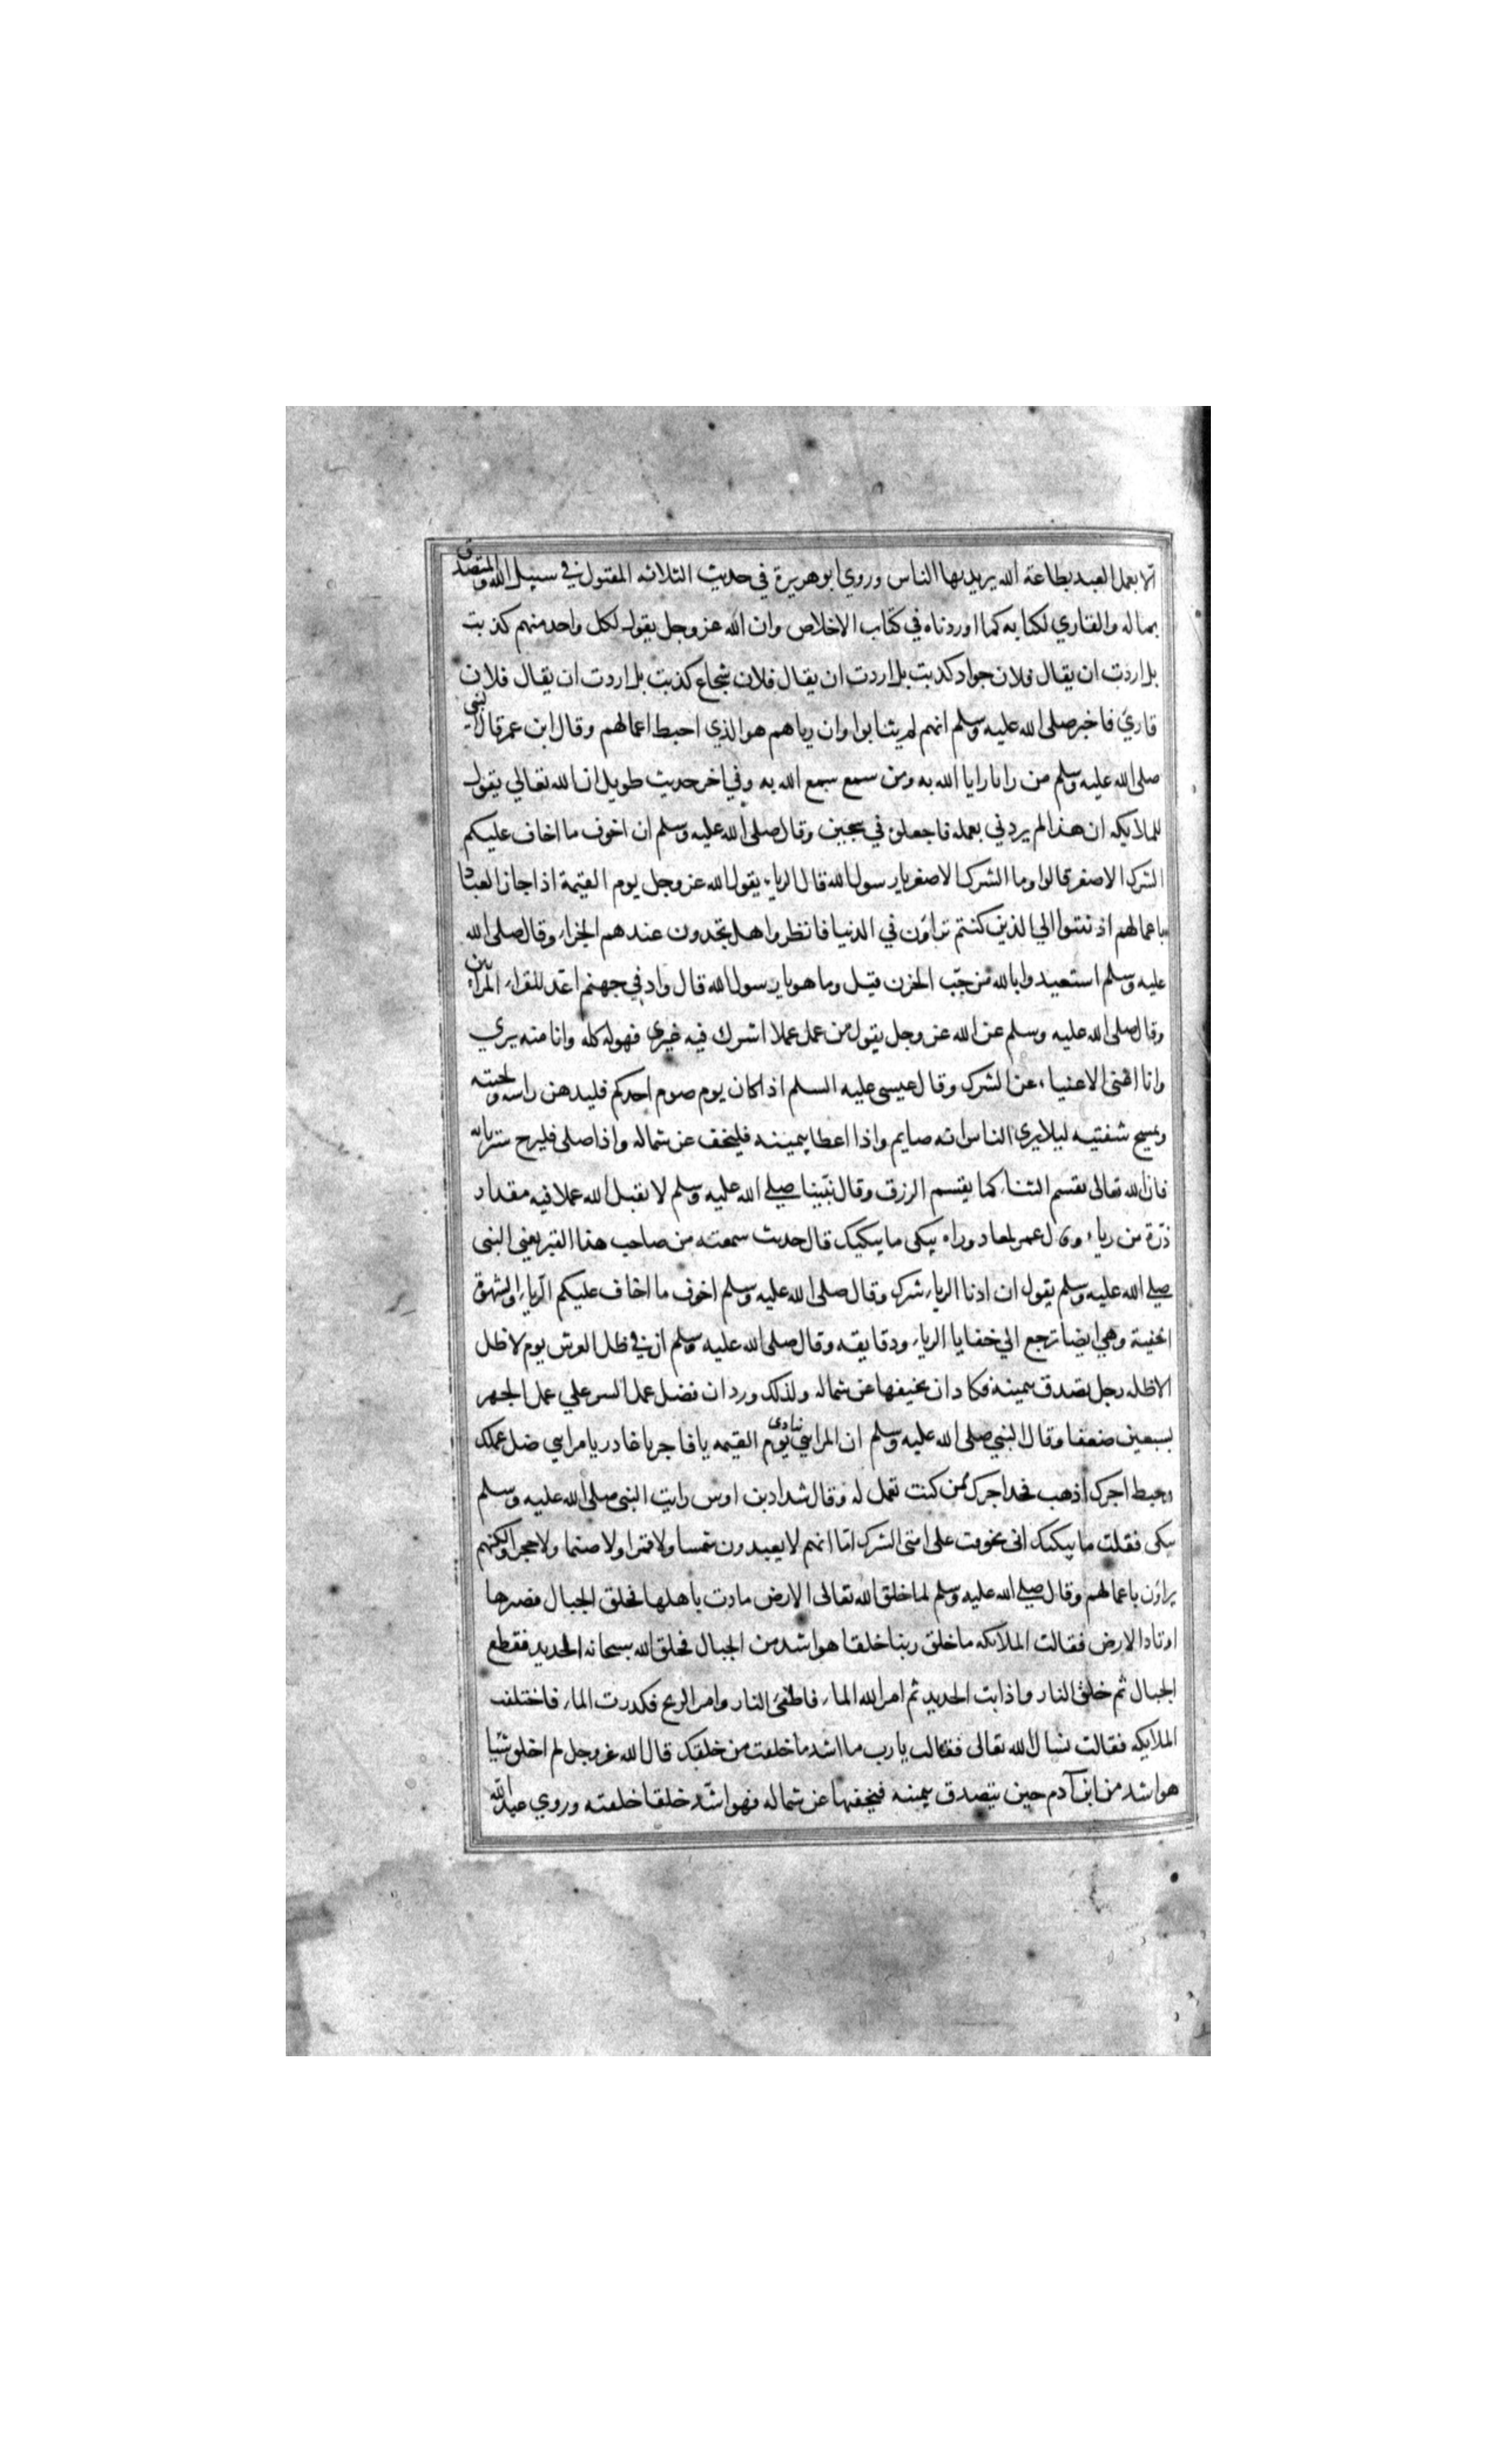 الا يعمل العبد بطاعة الله يريد بها الناس وروي ابو هريرة في حديث الثلاثه المقتول في سبيل الله والمتصدق
بماله والقاري لكتابه كما اوردناه في كتاب الاخلاص وان الله عز وجل يقول لكل واحد منهم كذبت
بل اردت ان يقال فلان جواد كذبت بل اردت ان يقال فلان شجاع كذبت بل اردت ان يقال فلان
قاريء فاخبر صلى الله عليه وسلم انهم لم يثابوا وان رياهم هو الذي احبط اعمالهم وقال ابن عمر قال النبي
صلى الله عليه وسلم من رايا رايا الله به ومن سمع سمع الله به وفي اخر حديث طويل ان الله تعالي يقول
للملايكه ان هذا لم يردني بعمله فاجعلوه في سجين وقال صلى الله عليه وسلم ان اخوف ما اخاف عليكم
الشرك الاصغر قالوا وما الشرك الاصغر يا رسول الله قال الرياء يقول الله عز وجل يوم القيمة اذا جاز العباد
باعمالهم اذهبوا الي الذين كنتم تراؤن في الدنيا فانظروا هل تجدون عندهم الجزاء وقال صلى الله
عليه وسلم استعيدوا بالله من جب الحزن قيل وما هو يا رسول الله قال واد في جهنم اعد للقراء المرائين
وقال صلى الله عليه وسلم عن الله عز وجل يقول من عمل عملا اشرك فيه غيري فهو له كله وانا منه بري
وانا اغنى الاغنياء عن الشرك وقال عيسى عليه السلم اذا كان يوم صوم احدكم فليدهن راسه ولحيته
ويمسح شفتيه ليلا يرى الناس انه صايم واذا اعطا بيمينه فليخف عن شماله واذا صلى فليرخ ستر بابه
فان الله تعالى يقسم الثناء كما يقسم الرزق وقال نبينا صلى الله عليه وسلم لا يقبل الله عملا فيه مقدار
ذرة من رياء وقال عمر لمعاد وراه يبكى ما يبكيك قال حديث سمعته من صاحب هذا القبر يعني النبى
صلى الله عليه وسلم يقول ان ادنا الرياء شرك وقال صلى الله عليه وسلم اخوف ما اخاف عليكم الرياء والشهوة
الخفية وهي ايضا ترجع الي خفايا الرياء ودقايقه وقال صلى الله عليه وسلم ان في ظل العرش يوم لا ظل
الا ظله رجل تصدق بيمينه فكاد ان يخفيها عن شماله ولذلك ورد ان فضل عمل السر علي عمل الجهر
بسبعين ضعفا وقال النبي صلى الله عليه وسلم ان المرائي ينادى يوم القيمه يا فاجر يا غادر يا مرايي ضل عملك
وحبط اجرك اذهب فخذ اجرك ممن كنت تعمل له وقال شداد بن اوس رايت النبي صلى الله عليه وسلم
يبكى فقلت ما يبكيك انى تخوفت على امتى الشرك اما انهم لا يعبدون شمسا ولا قمرا ولا صنما ولا حجرا ولكنهم
يراؤن باعمالهم وقال صلى الله عليه وسلم لما خلق الله تعالى الارض مادت باهلها فخلق الجبال فصيرها
اوتادا الارض فقالت الملائكه ما خلق ربنا خلقا هو اشد من الجبال فخلق الله سبحانه الحديد فقطع
الجبال ثم خلق النار واذابت الحديد ثم امر الله الماء فاطفئ النار وامر الريح فكدرت الماء فاختلفت
الملايكه فقالت نسال الله تعالى فقالت يا رب ما اشد ما خلقت من خلقك قال الله عز وجل لم اخلق شيا
هو اشد من ابن آدم حين يتصدق بيمينه فيخفيها عن شماله فهو اشد خلقا خلقته وروي عبد الله